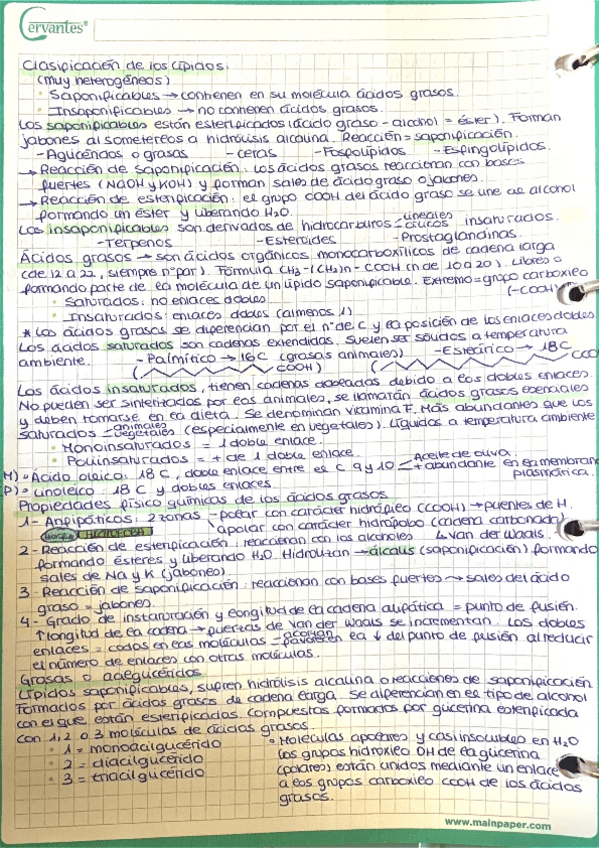 Cervantes®
Clasificación de los lípidos:
(muy heterogéneos)
· Saponificables → contienen en su molécula ácidos grasos.
· Insaponificables → no contienen ácidos grasos.
Los saponificables están esterificados (ácido graso - alcohol = éster). Forman
jabones al someteros a hidrólisis alcalina. Reacción = saponificación.
- Aglicéridos o grasas - ceras - Fosfolípidos - Esfingolípidos.
→ Reacción de saponificación: los ácidos grasos reaccionan con bases
fuertes (NaOH y KOH) y forman sales de ácido graso o jabones.
→ Reacción de esterificación: el grupo COOH del ácido graso se une al alcohol
formando un éster y liberando H₂O.
Los insaponificables son derivados de hidrocarburos lineales cíclicos insaturados.
- Terpenos - Esteroides - Prostaglandinas.
Ácidos grasos → son ácidos orgánicos monocarboxílicos de cadena larga
(de 12 a 22, siempre nº par). Fórmula CH₃-(CH₂)n-COOH (n de 10 a 20). Libres o
formando parte de la molécula de un lípido saponificable. Extremo = grupo carboxilo
(-COOH)
· Saturados: no enlaces dobles
· Insaturados: enlaces dobles (al menos 1)
* Los ácidos grasos se diferencian por el nº de C y la posición de los enlaces dobles.
Los ácidos saturados son cadenas extendidas. Suelen ser sólidos a temperatura
ambiente. - Palmítico → 16C (grasas animales) - Esteárico → 18C
COOH) COO
Los ácidos insaturados, tienen cadenas dobladas debido a los dobles enlaces.
No pueden ser sintetizados por los animales, se llamarán ácidos grasos esenciales
y deben tomarse en la dieta. Se denominan vitamina F. Más abundantes que los
saturados animales vegetales (especialmente en vegetales). Líquidos a temperatura ambiente
· Monoinsaturados = 1 doble enlace.
· Poliinsaturados = + de 1 doble enlace.
M) · Ácido oleico: 18C, doble enlace entre el C 9 y 10 Aceite de oliva. + abundante en la membrana
plasmática.
P) · Linoleico: 18C y dobles enlaces.
Propiedades físico químicas de los ácidos grasos
1- Anfipáticos: 2 zonas - polar con carácter hidrófilo (COOH) → puentes de H.
apolar con carácter hidrófobo (cadena carbonada)
↳ Van der Waals.
2- Reacción de esterificación: reaccionan con los alcoholes
formando ésteres y liberando H₂O. Hidrolizan → álcalis (saponificación) formando
sales de Na y K (jabones)
3- Reacción de saponificación: reaccionan con bases fuertes → sales del ácido
graso = jabones.
4- Grado de instauración y longitud de la cadena alifática = punto de fusión.
↑ longitud de la cadena → fuerzas de Van der Waals se incrementan. Los dobles
enlaces = codos en las moléculas = acortan favorecen la ↓ del punto de fusión al reducir
el número de enlaces con otras moléculas.
Grasas o acilglicéridos
Lípidos saponificables, sufren hidrólisis alcalina o reacciones de saponificación
Formados por ácidos grasos de cadena larga. Se diferencian en el tipo de alcohol
con el que están esterificados. Compuestos formados por glicerina esterificada
con 1, 2 o 3 moléculas de ácidos grasos.
· 1 = monoacilglicérido
· 2 = diacilglicérido
· 3 = triacilglicérido
· Moléculas apolares y casi insolubles en H₂O
los grupos hidroxilo OH de la glicerina
(polares) están unidos mediante un enlace
a los grupos carboxilo COOH de los ácidos
grasos.
www.mainpaper.com